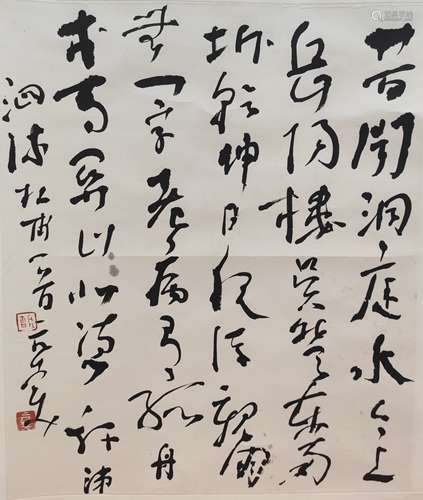 昔聞洞庭水今上
岳陽樓吳楚東南
坼乾坤日夜浮親朋
無一字老病有孤舟
戎馬關山北憑軒涕
泗流 杜甫一首